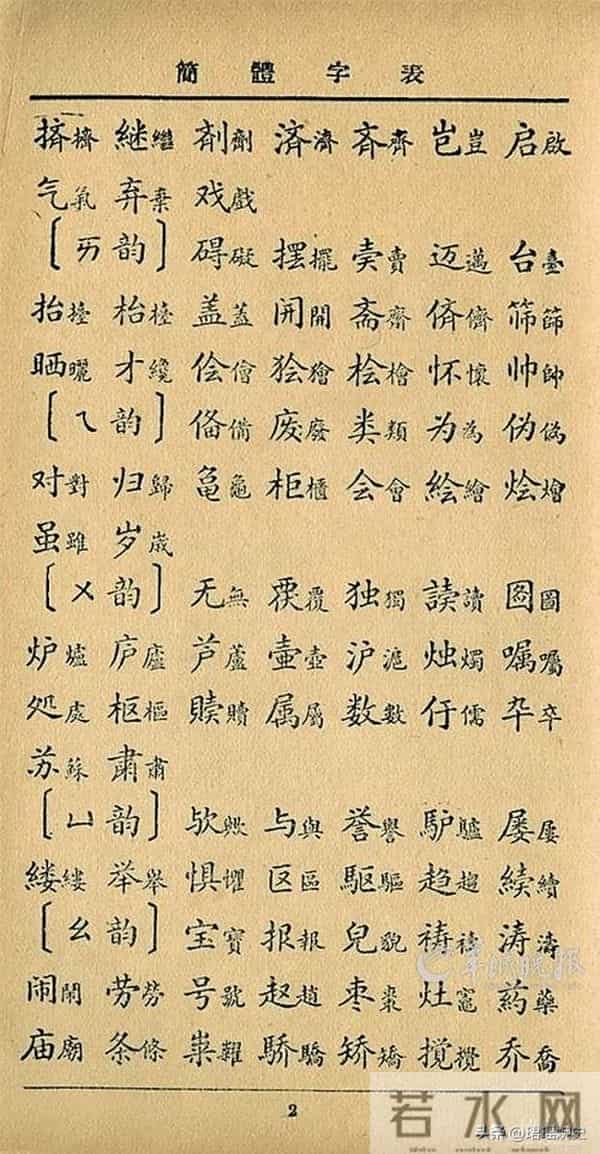 簡體字表
挤擠 継繼 剂劑 済濟 斉齊 岂豈 启啟
气氣 弃棄 戏戲
〔ㄞ韵〕 碍礙 摆擺 卖賣 迈邁 台臺
抬擡 枱檯 盖蓋 開開 斋齋 侪儕 筛篩
晒曬 才纔 侩儈 狯獪 桧檜 怀懷 帅帥
〔ㄟ韵〕 俻備 废廢 类類 为為 伪偽
对對 归歸 亀龜 柜櫃 会會 絵繪 烩燴
虽雖 岁歲
〔ㄨ韵〕 无無 覆 独獨 読讀 図圖
炉爐 庐廬 芦蘆 壷壺 沪滬 烛燭 嘱囑
処處 枢樞 贖贖 属屬 数數 儒 卆卒
苏蘇 肃肅
〔ㄩ韵〕 欤歟 与與 誉譽 馿驢 屡屢
缕縷 举舉 惧懼 区區 駆驅 趋趨 続續
〔ㄠ韵〕 宝寶 报報 皃貌 祷禱 涛濤
闹鬧 劳勞 号號 赵趙 枣棗 灶竈 药藥
庙廟 条條 糶 骄驕 矫矯 搅攪 乔喬
2
若水网